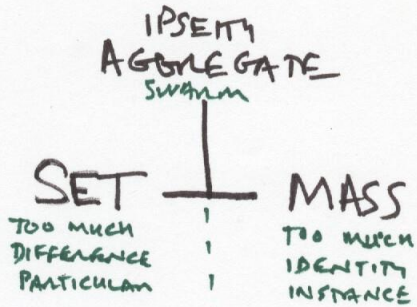 IPSEITY
AGGREGATE
SWARM
SET
MASS
TOO MUCH
DIFFERENCE
PARTICULAR
TOO MUCH
IDENTITY
INSTANCE